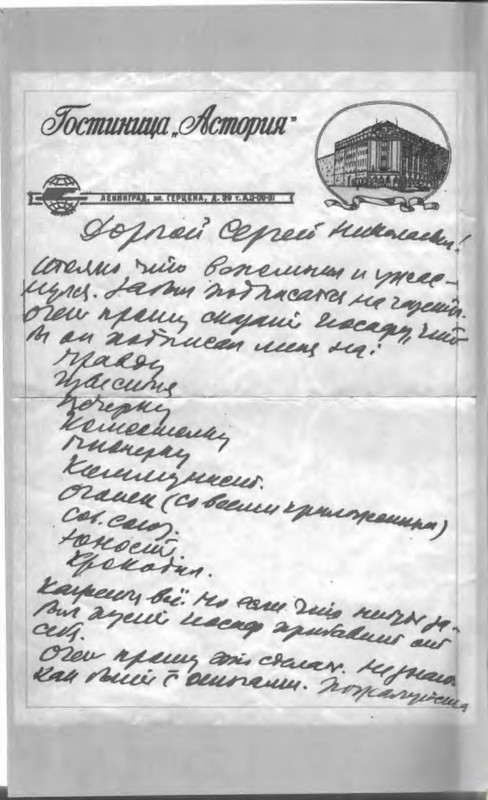 Гостиница „Астория"
ЛЕНИНГРАД, ул. ГЕРЦЕНА, Д. 39
Дорогой Сергей Николаевич!
только что вспомнил и ужас-
нулся. Забыл подписаться на газеты.
Очень прошу скажи Иосифу, чтоб
он подписал меня на:
Правду
Известия
Вечерку
Комсомолку
Пионерку
Коммунист.
Огонек (со всеми приложениями)
Сов. союз.
Юность
Крокодил.
Кажется всё. Но если что нибудь за-
был пусть Иосиф прибавит от
себя.
Очень прошу это сделать. Не знаю
как быть с деньгами. Пожалуйста